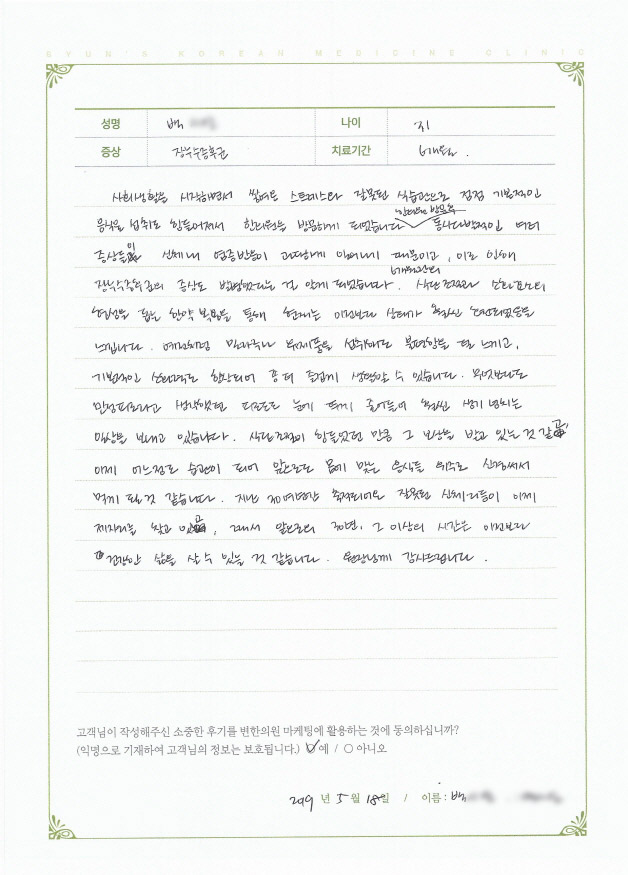 BYUN'S KOREAN MEDICINE CLINIC
성명 백 나이 31
증상 장누수증후군 치료기간 6개월.
사회생활을 시작하면서 쌓여온 스트레스와 잘못된 식습관으로 점점 기본적인
한의원 방문 후
음식물 섭취도 힘들어져서 한의원을 방문하게 되었습니다 동시다발적인 여러
증상들이 신체 내 염증반응이 과다하게 일어나기 때문이고, 이로 인해
6개월간의
장누수증후군의 증상도 발현했다는 걸 알게 되었습니다. 식단조절과
면역을 돕는 한약 복용을 통해 현재는 이전보다 상태가 훨씬 호전되었음을
느낍니다. 예전처럼 밀가루나 유제품을 섭취해도 불편함을 덜 느끼고,
기본적인 신체력도 향상되어 좀 더 즐겁게 생활할 수 있습니다. 무엇보다도
만성피로라고 생각했던 피로도도 눈에 띄게 줄어들어 훨씬 생기 넘치는
일상을 보내고 있습니다. 식단조절이 힘들었던 만큼 그 보상을 받고 있는 것 같고,
이제 어느정도 습관이 되어 앞으로도 몸에 맞는 음식들 위주로 신경써서
먹게 될 것 같습니다. 지난 30여년간 축적되어온 잘못된 신체리듬이 이제
제자리를 찾고 있고, 그래서 앞으로의 30년, 그 이상의 시간은 이전보다
건강한 삶을 살 수 있는 것 같습니다. 원장님께 감사드립니다.
고객님이 작성해주신 소중한 후기를 변한의원 마케팅에 활용하는 것에 동의하십니까?
(익명으로 기재하여 고객님의 정보는 보호됩니다.) ✓예 / ○ 아니오
2019 년 5 월 18 일 / 이름 : 백